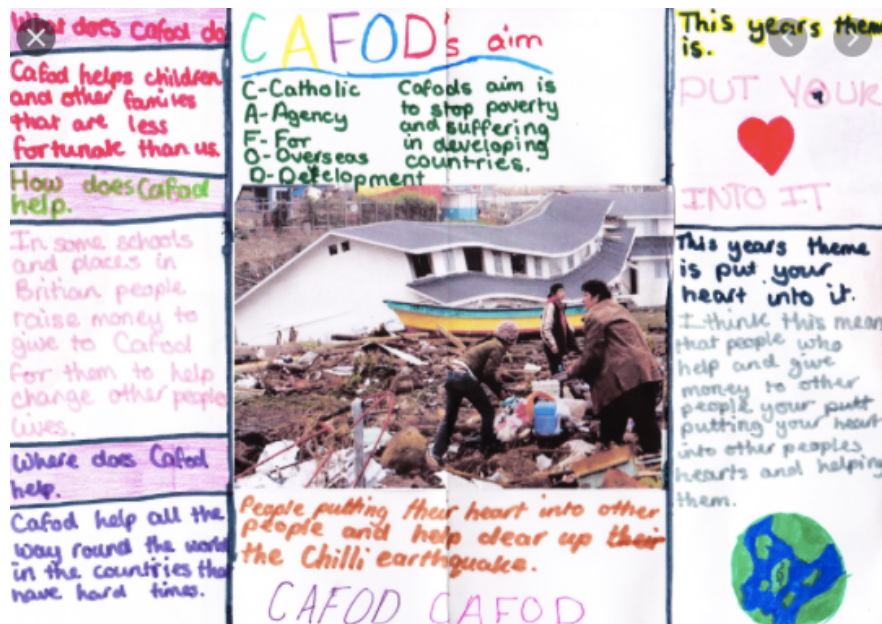 What does Cafod do
Cafod helps children
and other families
that are less
fortunate than us.
How does Cafod
help.
In some schools
and places in
Britian people
raise money to
give to Cafod
for them to help
change other people
lives.
Where does Cafod
help.
Cafod help all the
way round the world
in the countries tha
have hard times.
CAFOD's aim
C-Catholic
A-Agency
F-For
O-Overseas
D-Development
Cafods aim is
to stop poverty
and suffering
in developing
countries.
People putting their heart into other
people and help clear up their
the Chilli earthquake.
CAFOD CAFOD
This years theme
is.
PUT YOUR
INTO IT
This years theme
is put your
heart into it.
I think this mean
that people who
help and give
money to other
people your putt
putting your heart
into other peoples
hearts and helping
them.